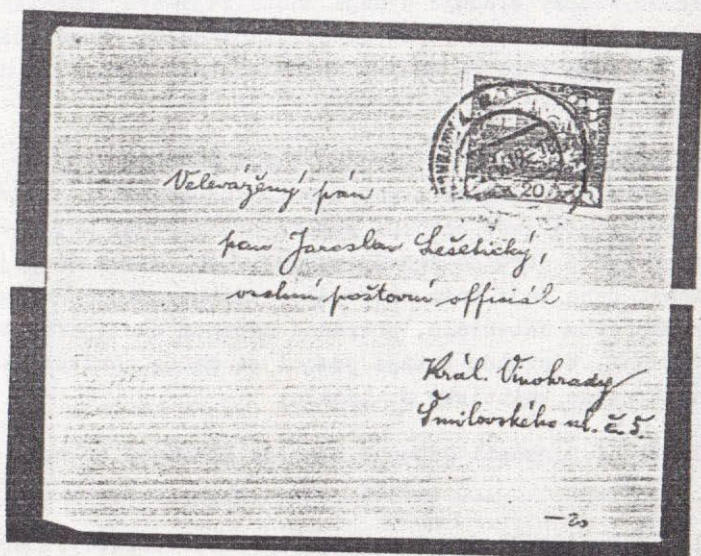 20
Velevážený pán
pan Jaroslav Lešetický,
vrchní poštovní official
Král. Vinohrady
Šmilovského ul. č. 5.
—20